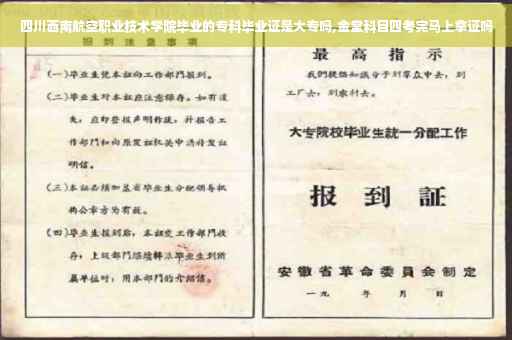 四川西南航空职业技术学院毕业的专科毕业证是大专吗,金堂科目四考完马上拿证吗
报到注意事项
(一)毕业生凭本证向工作部門报到。
(二)毕业生对本証应注意保存。如有遺
失，应即登报声明作废，并报告工
作部門和向原发証机关申請补发証
明信。
(三)本証必须加盖省毕业生分配領导机
构公章方为有效。
(四)毕业生报到后，本証交工作部門收
存；上级部門继续轉派毕业生到所
属单位时，用本部門的介绍信。
最高指示
我們提倡知識分子到羣众中去，到
工厂去，到农村去。
大专院校毕业生統一分配工作
报到証
安徽省革命委員会制定
一九 年 月 日